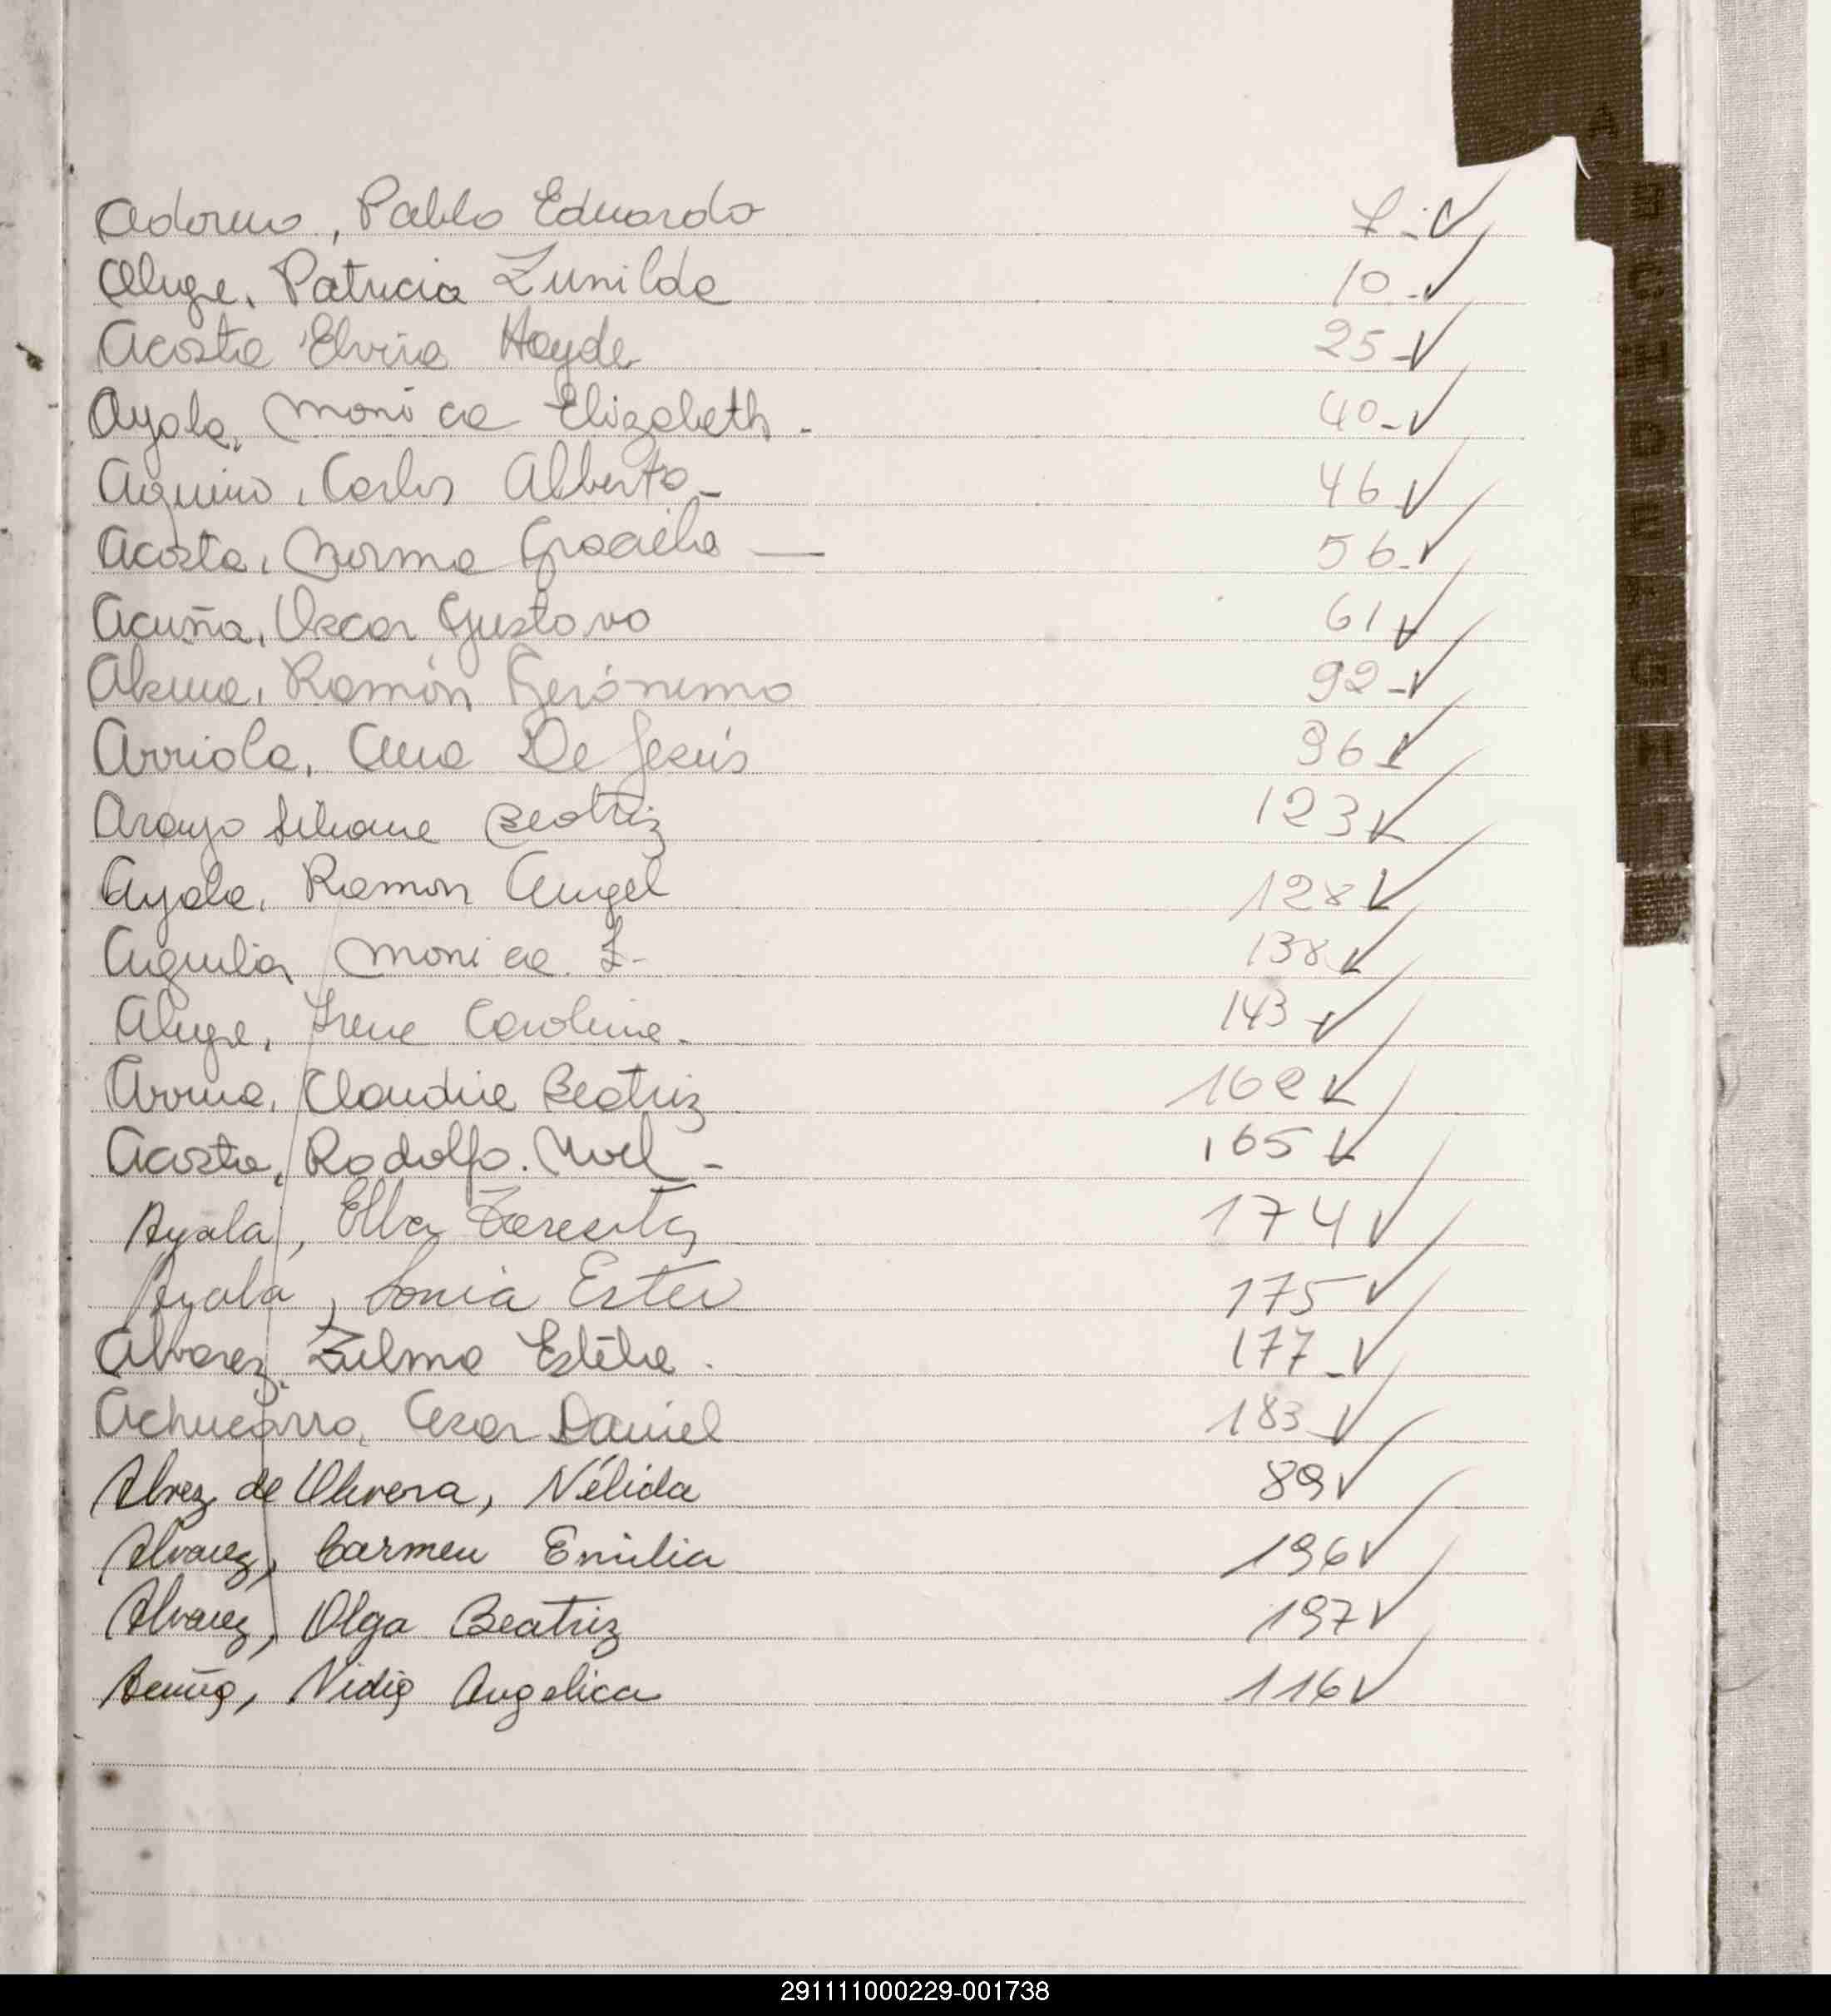 Adorno, Pablo Eduardo 7.-✓
Aluge, Patricia Zunilda 10-✓
Acosta Elvira Hayde 25-✓
Ayala, Monica Elizabeth- 40-✓
Aquino, Carlos Alberto- 46✓
Acosta, Norma Graciela — 56-✓
Acuña, Oscar Gustavo 61✓
Ramón Gerónimo 92-✓
Arriola, Ana De Jesús 96✓
Araujo Liliana Beatriz 123✓
Ayala, Ramon Angel 128✓
Aguila, Monica Z- 138✓
Aluge, Irene Carolina- 143✓
Arrua, Claudia Beatriz 162✓
Acosta, Rodolfo. Noel- 165✓
Ayala, Elba Teresita 174✓
Ayala, Sonia Ester 175✓
Alvarez, Zulma Estela. 177-✓
Achucarro, Cesar Daniel 183✓
Alvez de Olivera, Nélida 89✓
Alvarez, Carmen Emilia 196✓
Alvarez, Olga Beatriz 197✓
Acuña, Nidia Angelica 116✓
A
B
C
H
D
E
F
G
H
I
291111000229-001738